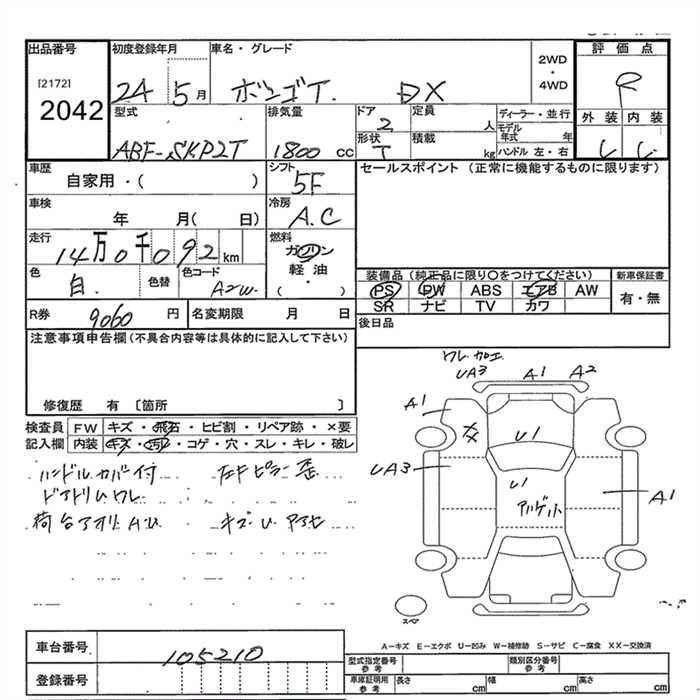 出品番号
[2172]
2042
初度登録年月
24 5月
車名・グレード
ボンゴT. DX
2WD
・
4WD
評価点
R
外装 内装
型式
ABF-SKP2T
排気量
1800 cc
ドア
2
形状
T
定員
人
積載
kg
ディーラー・並行
モデル年式 年
ハンドル 左・右
車歴
自家用・( )
シフト
5F
車検
年 月( 日)
冷房
A.C
走行
14万0千092km
燃料
ガソリン
軽油
・( )
色
白.
色替
色コード
A2W.
R券
9060円
名変期限 月 日
セールスポイント (正常に機能するものに限ります)
装備品 (純正品に限り○をつけてください)
PS PW ABS エアB AW
SR ナビ TV カワ
新車保証書
有・無
後日品
注意事項申告欄(不具合内容等は具体的に記入して下さい)
修復歴 有 〔箇所 〕
検査員記入欄
FW キズ・飛石・ヒビ割・リペア跡・×要
内装 キズ・汚れ・コゲ・穴・スレ・キレ・破レ
ハンドルカバー付 左Fピラー歪
ドアトリムワレ
荷台アオリAU キズ・U・アサビ
ワレ 加工
UA3 A1 A2
A1
U1
UA3
U1
A1
スペア
車台番号
105210
登録番号
A-キズ E-エクボ U-凹ミ W-補修跡 S-サビ C-腐食 XX-交換済
型式指定番号
参考
類別区分番号
車庫証明用
参考
長さ cm 幅 cm 高さ cm